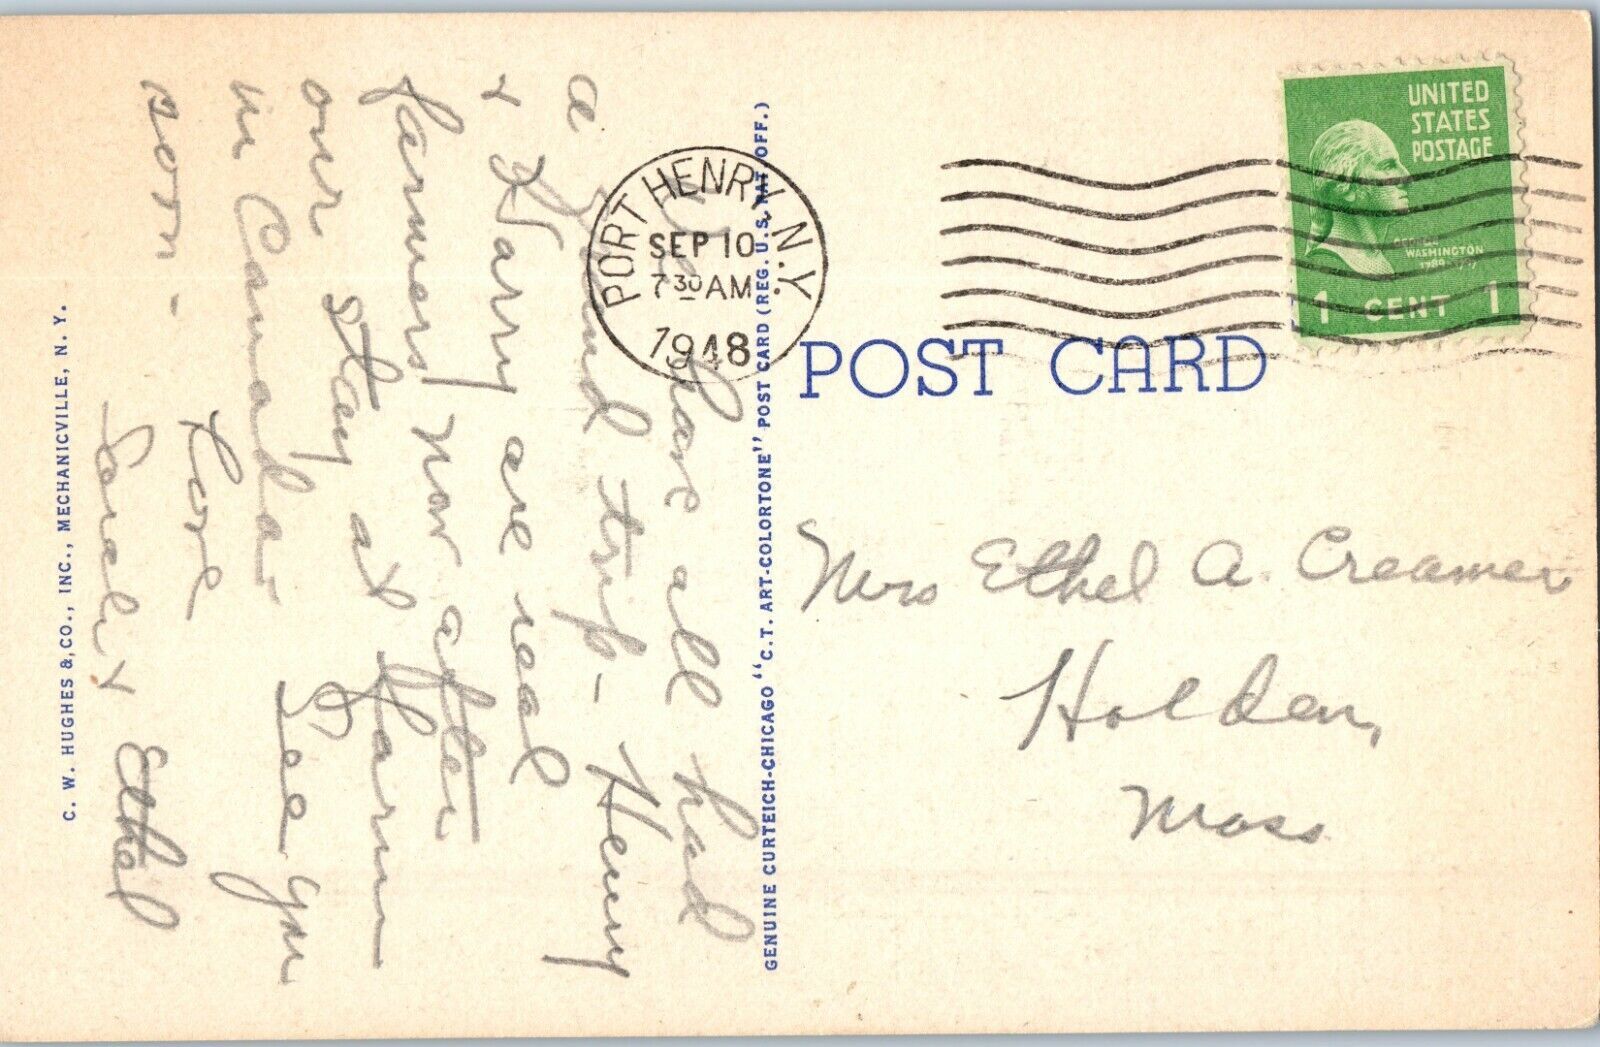 We have all had
a grand trip - Henry
& Harry are real
farmers now after
our stay at farm
in Canada. See you
soon -
Love
Sarah & Ethel
C. W. HUGHES & CO., INC., MECHANICVILLE, N. Y.
GENUINE CURTEICH-CHICAGO "C.T. ART-COLORTONE" POST CARD (REG. U.S. PAT. OFF.)
PORT HENRY N.Y.
SEP 10
7 30 AM
1948
UNITED
STATES
POSTAGE
WASHINGTON
1 CENT 1
POST CARD
Mrs Ethel A. Creamer
Holden,
Mass